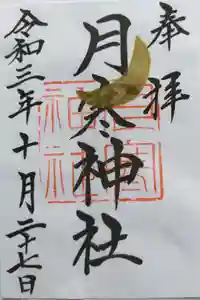 奉拝
月寒神社
令和三年十月二十七日